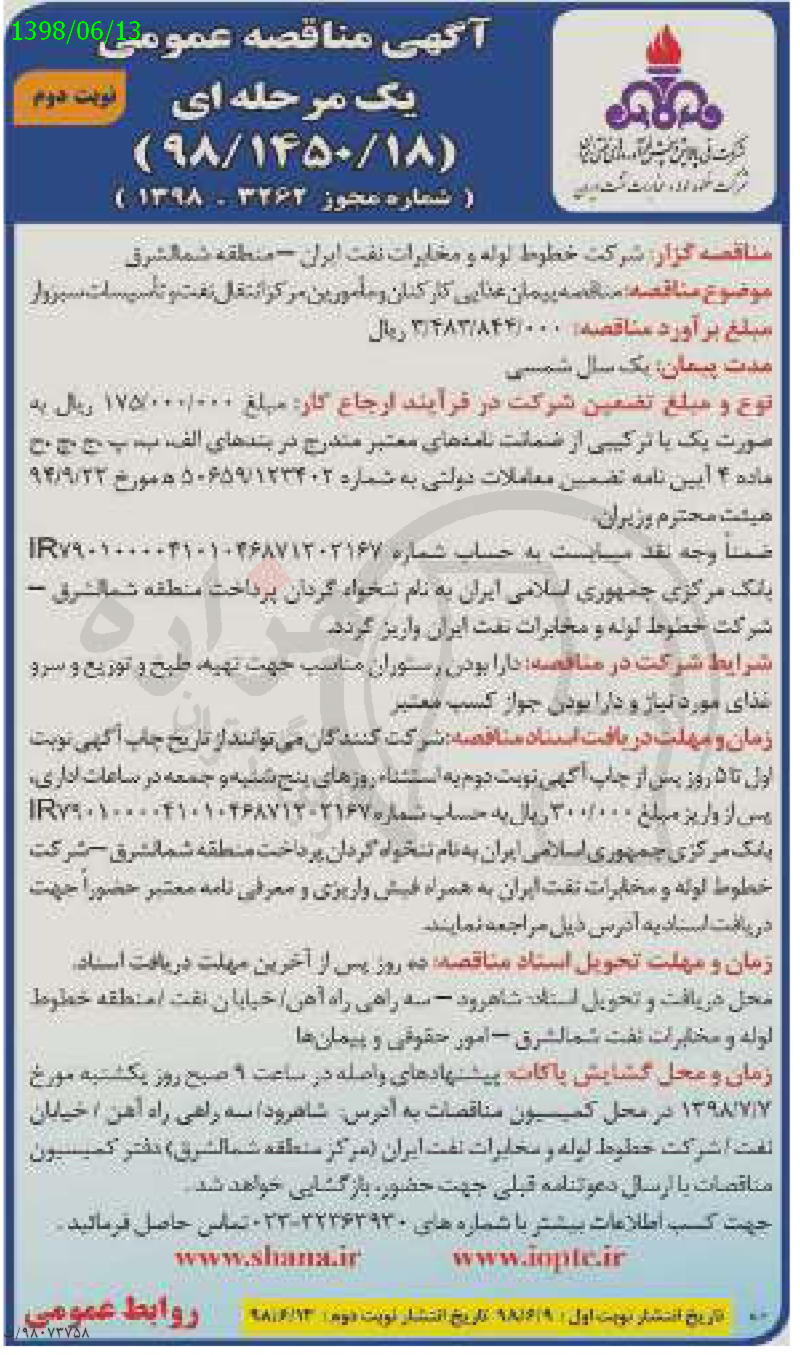 1398/06/13
آگهی مناقصه عمومی
یک مرحله ای
نوبت دوم
(۹۸/۱۴۵۰/۱۸)
( شماره مجوز ۳۲۶۲ - ۱۳۹۸ )
شرکت خطوط لوله و مخابرات نفت ایران
مناقصه گزار: شرکت خطوط لوله و مخابرات نفت ایران – منطقه شمالشرق
موضوع مناقصه: مناقصه پیمان غذایی کارکنان و مأمورین مرکز انتقال نفت و تأسیسات سبزوار
مبلغ برآورد مناقصه: ۳/۴۸۳/۸۴۴/۰۰۰ ریال
مدت پیمان: یک سال شمسی
نوع و مبلغ تضمین شرکت در فرآیند ارجاع کار: مبلغ ۱۷۵/۰۰۰/۰۰۰ ریال به
صورت یک یا ترکیبی از ضمانت نامه‌های معتبر مندرج در بندهای الف، ب، پ، ج، چ، ح
ماده ۴ آیین نامه تضمین معاملات دولتی به شماره ۱۲۳۴۰۲/ت۵۰۶۵۹ ه مورخ ۹۴/۹/۲۲
هیئت محترم وزیران.
ضمناً وجه نقد میبایست به حساب شماره IR۷۹۰۱۰۰۰۰۴۱۰۱۰۴۶۸۷۱۲۰۲۱۶۷
بانک مرکزی جمهوری اسلامی ایران به نام تنخواه گردان پرداخت منطقه شمالشرق –
شرکت خطوط لوله و مخابرات نفت ایران واریز گردد.
شرایط شرکت در مناقصه: دارا بودن رستوران مناسب جهت تهیه، طبخ و توزیع و سرو
غذای مورد نیاز و دارا بودن جواز کسب معتبر
زمان و مهلت دریافت اسناد مناقصه: شرکت کنندگان می توانند از تاریخ چاپ آگهی نوبت
اول تا ۵ روز پس از چاپ آگهی نوبت دوم به استثناء روزهای پنج شنبه و جمعه در ساعات اداری،
پس از واریز مبلغ ۳۰۰/۰۰۰ ریال به حساب شماره IR۷۹۰۱۰۰۰۰۴۱۰۱۰۴۶۸۷۱۲۰۲۱۶۷
بانک مرکزی جمهوری اسلامی ایران به نام تنخواه گردان پرداخت منطقه شمالشرق – شرکت
خطوط لوله و مخابرات نفت ایران به همراه فیش واریزی و معرفی نامه معتبر حضوراً جهت
دریافت اسناد به آدرس ذیل مراجعه نمایند.
زمان و مهلت تحویل اسناد مناقصه: ده روز پس از آخرین مهلت دریافت اسناد.
محل دریافت و تحویل اسناد: شاهرود – سه راهی راه آهن/ خیابان نفت /منطقه خطوط
لوله و مخابرات نفت شمالشرق – امور حقوقی و پیمان‌ها
زمان و محل گشایش پاکات: پیشنهادهای واصله در ساعت ۹ صبح روز یکشنبه مورخ
۱۳۹۸/۷/۷ در محل کمیسیون مناقصات به آدرس: شاهرود/ سه راهی راه آهن / خیابان
نفت / شرکت خطوط لوله و مخابرات نفت ایران (مرکز منطقه شمالشرق) دفتر کمیسیون
مناقصات با ارسال دعوتنامه قبلی جهت حضور، بازگشایی خواهد شد .
جهت کسب اطلاعات بیشتر با شماره های ۳۲۳۶۳۹۳۰-۰۲۳ تماس حاصل فرمائید .
www.shana.ir www.ioptc.ir
تاریخ انتشار نوبت اول : ۹۸/۶/۹ تاریخ انتشار نوبت دوم: ۹۸/۶/۱۳
روابط عمومی
۹۸۰۷۳۷۵۸/